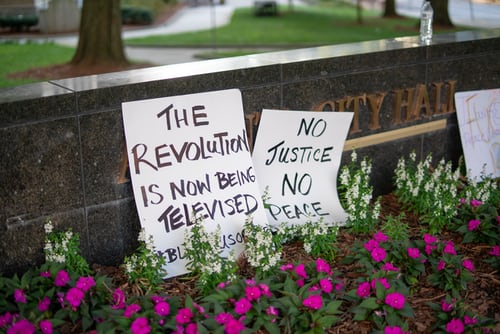 THE
REVOLUTION
IS NOW BEING
TELEVISED
NO
JUSTICE
NO
PEACE
CITY HALL